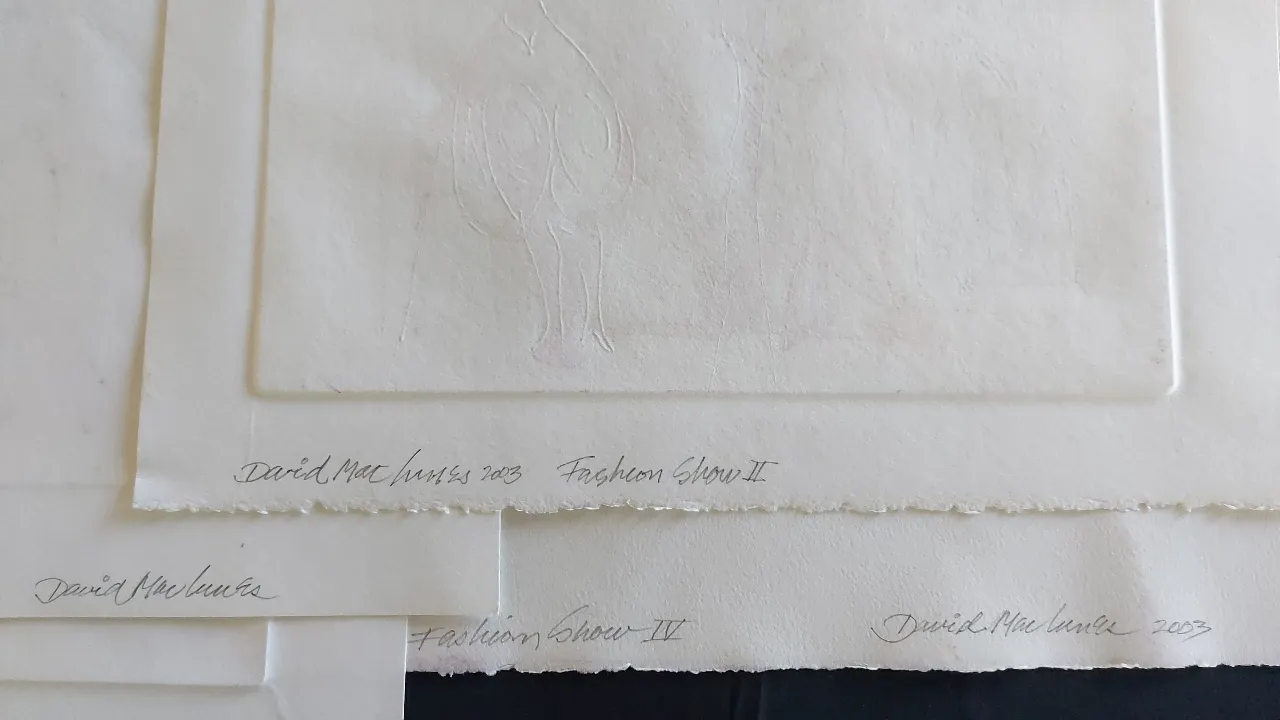 David MacInnes 2003 Fashion Show II
David MacInnes
Fashion Show IV David MacInnes 2003